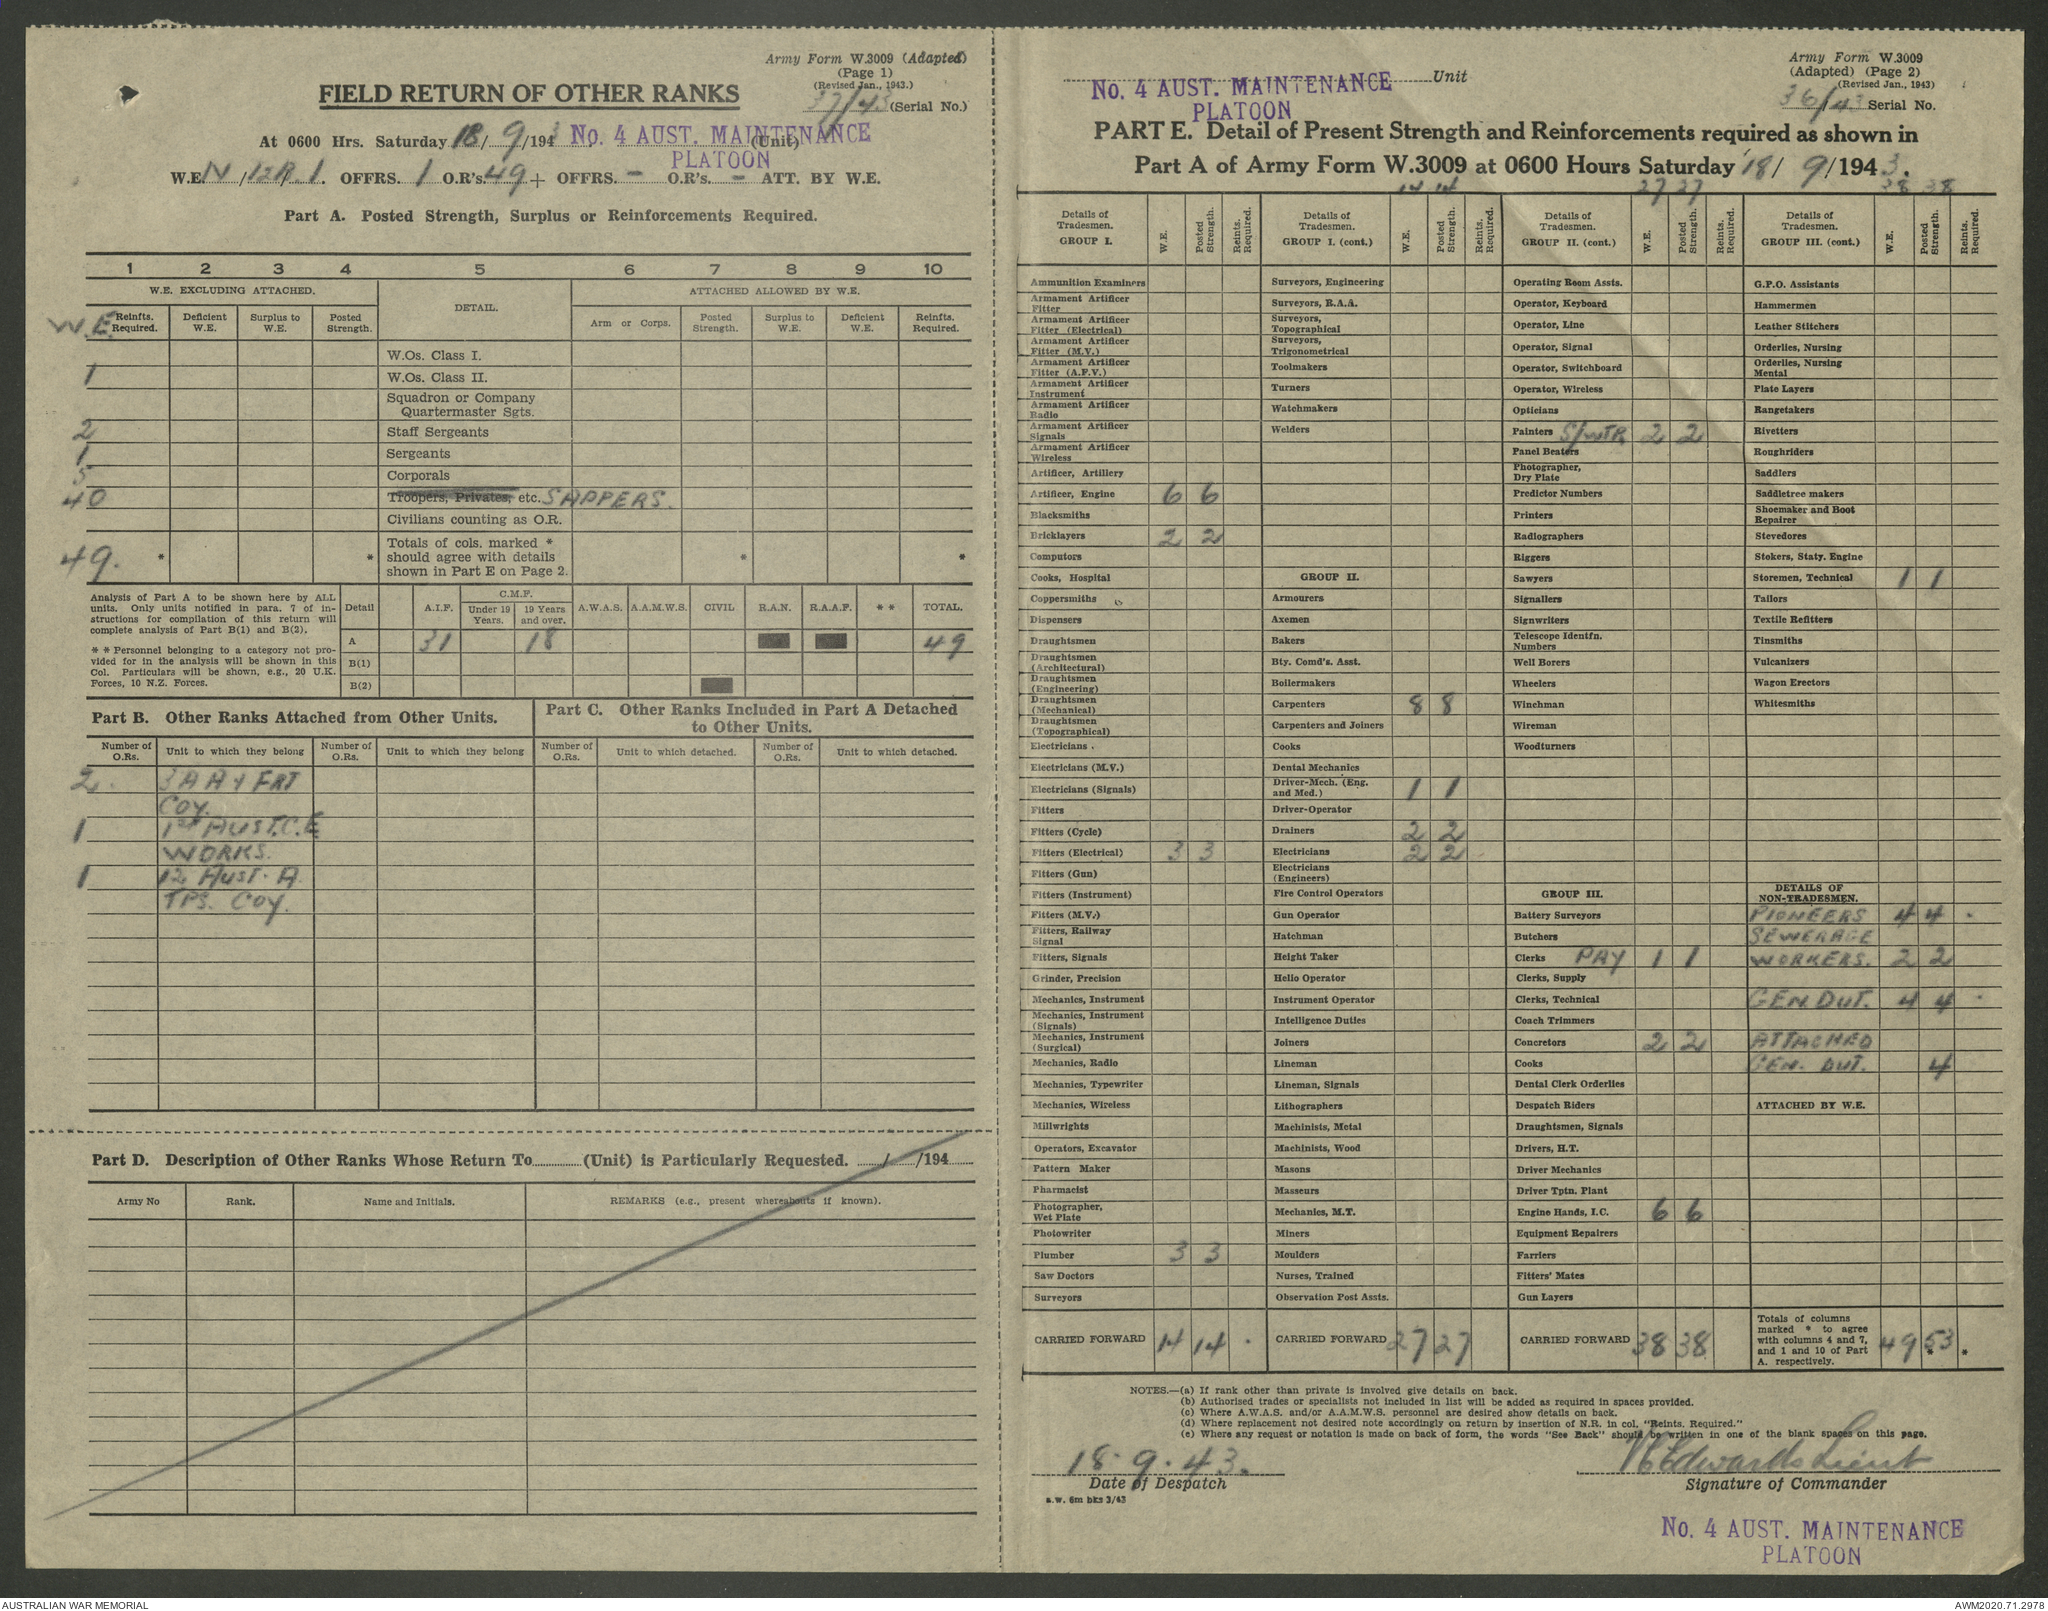 Army Form W.3009 (Adapted)
(Page 1)
(Revised Jan., 1943.)
37/43 (Serial No.)
FIELD RETURN OF OTHER RANKS
At 0600 Hrs. Saturday 18/ 9/1943 No. 4 AUST. MAINTENANCE (Unit)
PLATOON
W.E. IV /12R.1. OFFRS. 1 O.R's. 49 + OFFRS. - O.R's. - ATT. BY W.E.
Part A. Posted Strength, Surplus or Reinforcements Required.
1 2 3 4 5 6 7 8 9 10
W.E. EXCLUDING ATTACHED. DETAIL. ATTACHED ALLOWED BY W.E.
W.E. Reinfts. Required. Deficient W.E. Surplus to W.E. Posted Strength. Arm or Corps. Posted Strength. Surplus to W.E. Deficient W.E. Reinfts. Required.
W.Os. Class I.
1 W.Os. Class II.
Squadron or Company
Quartermaster Sgts.
2 Staff Sergeants
1 Sergeants
5 Corporals
40 Troopers, Privates, etc. SAPPERS.
Civilians counting as O.R.
49. * * Totals of cols. marked * * *
should agree with details
shown in Part E on Page 2.
Analysis of Part A to be shown here by ALL
units. Only units notified in para. 7 of in-
structions for compilation of this return will
complete analysis of Part B(1) and B(2).
* * Personnel belonging to a category not pro-
vided for in the analysis will be shown in this
Col. Particulars will be shown, e.g., 20 U.K.
Forces, 10 N.Z. Forces.
Detail A.I.F. C.M.F. Under 19 Years. 19 Years and over. A.W.A.S. A.A.M.W.S. CIVIL R.A.N. R.A.A.F. * * TOTAL.
A 31 18 49
B(1)
B(2)
Part B. Other Ranks Attached from Other Units.
Part C. Other Ranks Included in Part A Detached
to Other Units.
Number of O.Rs. Unit to which they belong Number of O.Rs. Unit to which they belong Number of O.Rs. Unit to which detached. Number of O.Rs. Unit to which detached.
2. 3 A A & FRT
COY.
1 1st AUST. C.E
WORKS.
1 12 AUST. A.
TPS. COY.
Part D. Description of Other Ranks Whose Return To (Unit) is Particularly Requested. / /194
Army No Rank. Name and Initials. REMARKS (e.g., present whereabouts if known).
No. 4 AUST. MAINTENANCE Unit
PLATOON
Army Form W.3009
(Adapted) (Page 2)
(Revised Jan., 1943)
36/43 Serial No.
PART E. Detail of Present Strength and Reinforcements required as shown in
Part A of Army Form W.3009 at 0600 Hours Saturday 18/ 9/1943.
14 14 27 27 38 38
Details of Tradesmen. GROUP I. W.E. Posted Strength. Reints. Required.
Ammunition Examiners
Armament Artificer Fitter
Armament Artificer Fitter (Electrical)
Armament Artificer Fitter (M.V.)
Armament Artificer Fitter (A.F.V.)
Armament Artificer Instrument
Armament Artificer Radio
Armament Artificer Signals
Armament Artificer Wireless
Artificer, Artillery
Artificer, Engine 6 6
Blacksmiths
Bricklayers 2 2
Computors
Cooks, Hospital
Coppersmiths
Dispensers
Draughtsmen
Draughtsmen (Architectural)
Draughtsmen (Engineering)
Draughtsmen (Mechanical)
Draughtsmen (Topographical)
Electricians .
Electricians (M.V.)
Electricians (Signals)
Fitters
Fitters (Cycle)
Fitters (Electrical) 3 3
Fitters (Gun)
Fitters (Instrument)
Fitters (M.V.)
Fitters, Railway Signal
Fitters, Signals
Grinder, Precision
Mechanics, Instrument
Mechanics, Instrument (Signals)
Mechanics, Instrument (Surgical)
Mechanics, Radio
Mechanics, Typewriter
Mechanics, Wireless
Millwrights
Operators, Excavator
Pattern Maker
Pharmacist
Photographer, Wet Plate
Photowriter
Plumber 3 3
Saw Doctors
Surveyors
CARRIED FORWARD 14 14
Details of Tradesmen. GROUP I. (cont.) W.E. Posted Strength. Reints. Required.
Surveyors, Engineering
Surveyors, R.A.A.
Surveyors, Topographical
Surveyors, Trigonometrical
Toolmakers
Turners
Watchmakers
Welders
GROUP II.
Armourers
Axemen
Bakers
Bty. Comd's. Asst.
Boilermakers
Carpenters 8 8
Carpenters and Joiners
Cooks
Dental Mechanics
Driver-Mech. (Eng. and Med.) 1 1
Driver-Operator
Drainers 2 2
Electricians 2 2
Electricians (Engineers)
Fire Control Operators
Gun Operator
Hatchman
Height Taker
Helio Operator
Instrument Operator
Intelligence Duties
Joiners
Lineman
Lineman, Signals
Lithographers
Machinists, Metal
Machinists, Wood
Masons
Masseurs
Mechanics, M.T.
Miners
Moulders
Nurses, Trained
Observation Post Assts.
CARRIED FORWARD 27 27
Details of Tradesmen. GROUP II. (cont.) W.E. Posted Strength. Reints. Required.
Operating Room Assts.
Operator, Keyboard
Operator, Line
Operator, Signal
Operator, Switchboard
Operator, Wireless
Opticians
Painters S/WTR 2 2
Panel Beaters
Photographer, Dry Plate
Predictor Numbers
Printers
Radiographers
Riggers
Sawyers
Signallers
Signwriters
Telescope Identfn. Numbers
Well Borers
Wheelers
Winchman
Wireman
Woodturners
GROUP III.
Battery Surveyors
Butchers
Clerks PAY 1 1
Clerks, Supply
Clerks, Technical
Coach Trimmers
Concretors 2 2
Cooks
Dental Clerk Orderlies
Despatch Riders
Draughtsmen, Signals
Drivers, H.T.
Driver Mechanics
Driver Tptn. Plant
Engine Hands, I.C. 6 6
Equipment Repairers
Farriers
Fitters' Mates
Gun Layers
CARRIED FORWARD 38 38
Details of Tradesmen. GROUP III. (cont.) W.E. Posted Strength. Reints. Required.
G.P.O. Assistants
Hammermen
Leather Stitchers
Orderlies, Nursing
Orderlies, Nursing Mental
Plate Layers
Rangetakers
Rivetters
Roughriders
Saddlers
Saddletree makers
Shoemaker and Boot Repairer
Stevedores
Stokers, Staty. Engine
Storemen, Technical 1 1
Tailors
Textile Refitters
Tinsmiths
Vulcanizers
Wagon Erectors
Whitesmiths
DETAILS OF
NON-TRADESMEN.
PIONEERS 4 4
SEWERAGE
WORKERS. 2 2
GEN. DUT. 4 4
ATTACHED
GEN. DUT. 4
ATTACHED BY W.E.
Totals of columns
marked * to agree
with columns 4 and 7,
and 1 and 10 of Part
A. respectively. 49 53 * *
NOTES.—(a) If rank other than private is involved give details on back.
(b) Authorised trades or specialists not included in list will be added as required in spaces provided.
(c) Where A.W.A.S. and/or A.A.M.W.S. personnel are desired show details on back.
(d) Where replacement not desired note accordingly on return by insertion of N.R. in col. "Reints. Required."
(e) Where any request or notation is made on back of form, the words "See Back" should be written in one of the blank spaces on this page.
18. 9. 43.
Date of Despatch
a.w. 6m bks 3/43
Edwards Lieut
Signature of Commander
No. 4 AUST. MAINTENANCE
PLATOON
AUSTRALIAN WAR MEMORIAL
AWM2020.71.2978